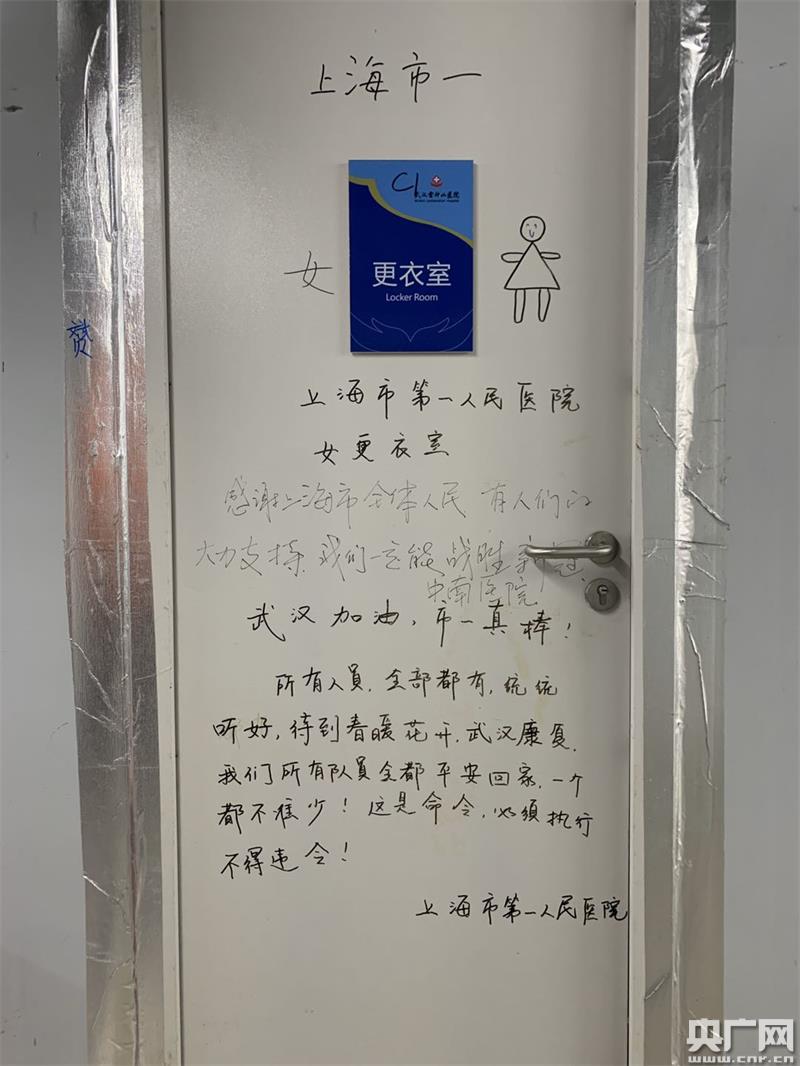 上海市一
C1
武汉雷神山医院
女
更衣室
Locker Room
赞
上海市第一人民医院
女更衣室
感谢上海市全体人民 有人们的
大力支持 我们一定能战胜新冠
中南医院
武汉加油,市一真棒!
所有人員,全部都有,统统
听好,待到春暖花开,武汉康复,
我们所有队员全都平安回家,一个
都不准少!这是命令,必须执行
不得违令!
上海市第一人民医院
央广网
www.cnr.cn